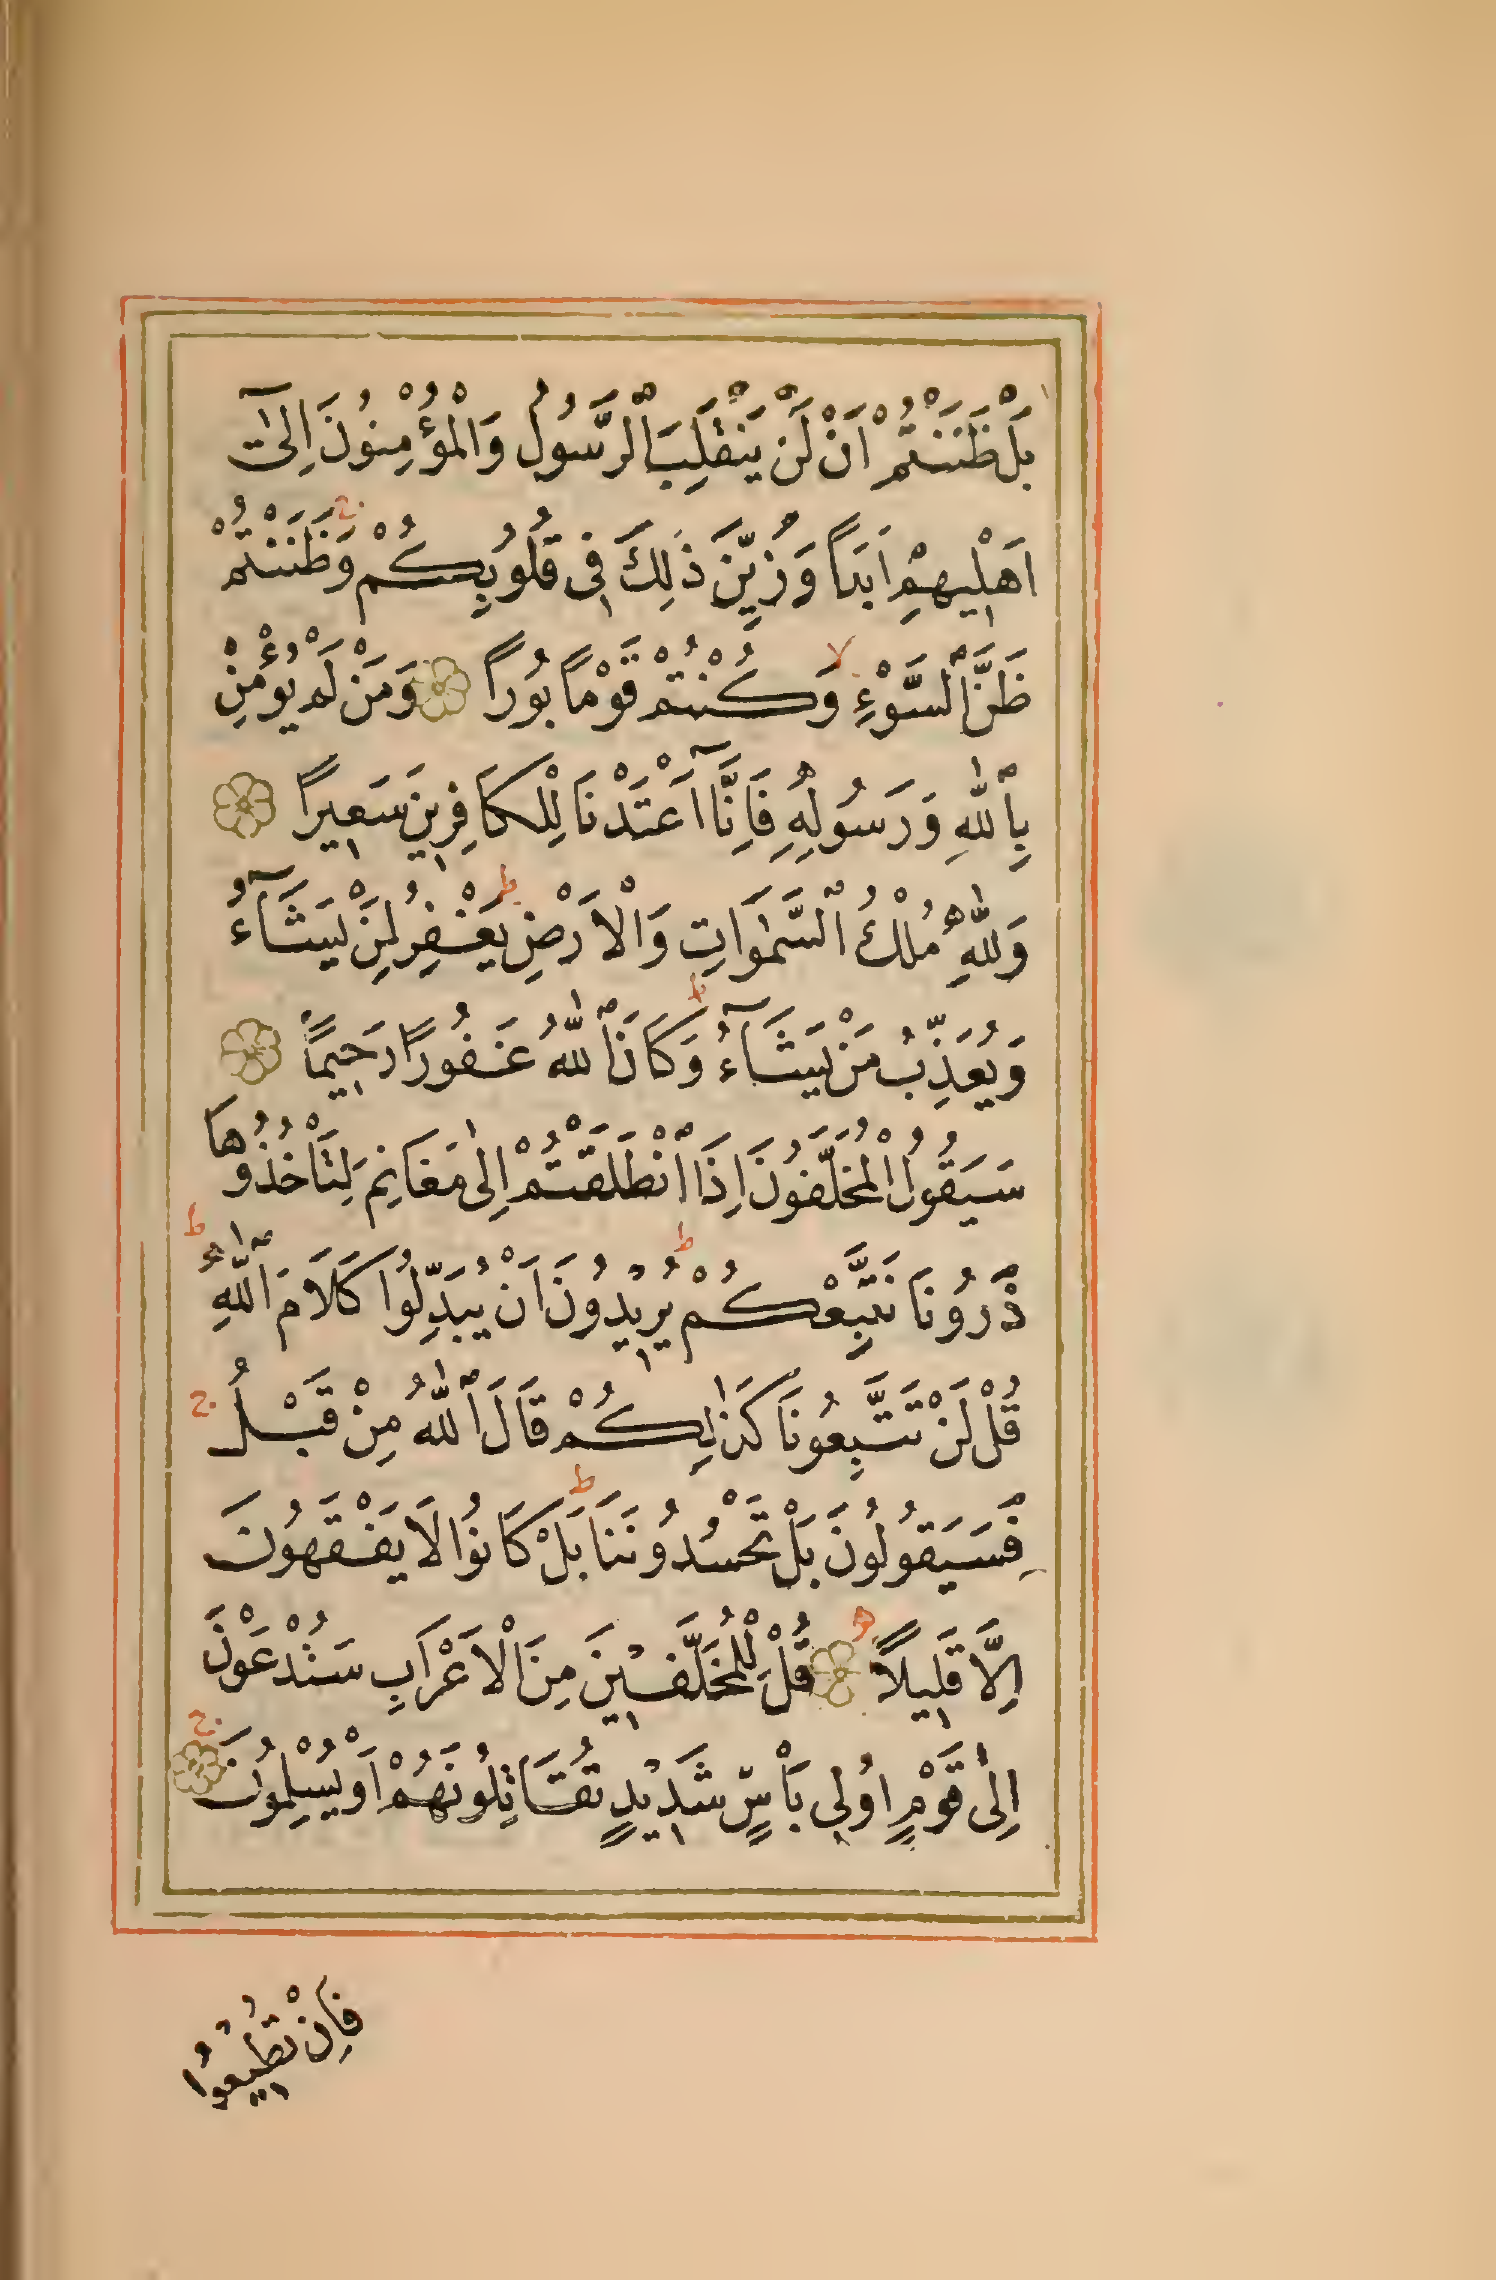 بَلْ ظَنَنْتُمْ اَنْ لَنْ يَنْقَلِبَ ٱلرَّسُولُ وَالْمُؤْمِنُونَ اِلٰٓى
اَهْلِيهِمْ اَبَدًا وَزُيِّنَ ذٰلِكَ فِى قُلُوبِكُمْ ج وَظَنَنْتُمْ
ظَنَّ ٱلسَّوْءِ لا وَكُنْتُمْ قَوْمًا بُورًا وَمَنْ لَمْ يُؤْمِنْ
بِٱللّٰهِ وَرَسُولِهِ فَاِنَّٓا اَعْتَدْنَا لِلْكَافِرِينَ سَعِيرًا
وَلِلّٰهِ مُلْكُ ٱلسَّمٰوَاتِ وَالْاَرْضِ ط يَغْفِرُ لِمَنْ يَشَٓاءُ
وَيُعَذِّبُ مَنْ يَشَٓاءُ ط وَكَانَ ٱللّٰهُ غَفُورًا رَحِيمًا
سَيَقُولُ الْمُخَلَّفُونَ اِذَا ٱنْطَلَقْتُمْ اِلٰى مَغَانِمَ لِتَأْخُذُوهَا
ذَرُونَا نَتَّبِعْكُمْ ط يُرِيدُونَ اَنْ يُبَدِّلُوا كَلَامَ ٱللّٰهِ ط
قُلْ لَنْ تَتَّبِعُونَا كَذٰلِكُمْ قَالَ ٱللّٰهُ مِنْ قَبْلُ ج
فَسَيَقُولُونَ بَلْ تَحْسُدُونَنَا ط بَلْ كَانُوا لَا يَفْقَهُونَ
اِلَّا قَلِيلًا قُلْ لِلْمُخَلَّفِينَ مِنَ الْاَعْرَابِ سَتُدْعَوْنَ
اِلٰى قَوْمٍ اُولِى بَأْسٍ شَدِيدٍ تُقَاتِلُونَهُمْ اَوْ يُسْلِمُونَ ج
فَاِنْ تُطِيعُوا